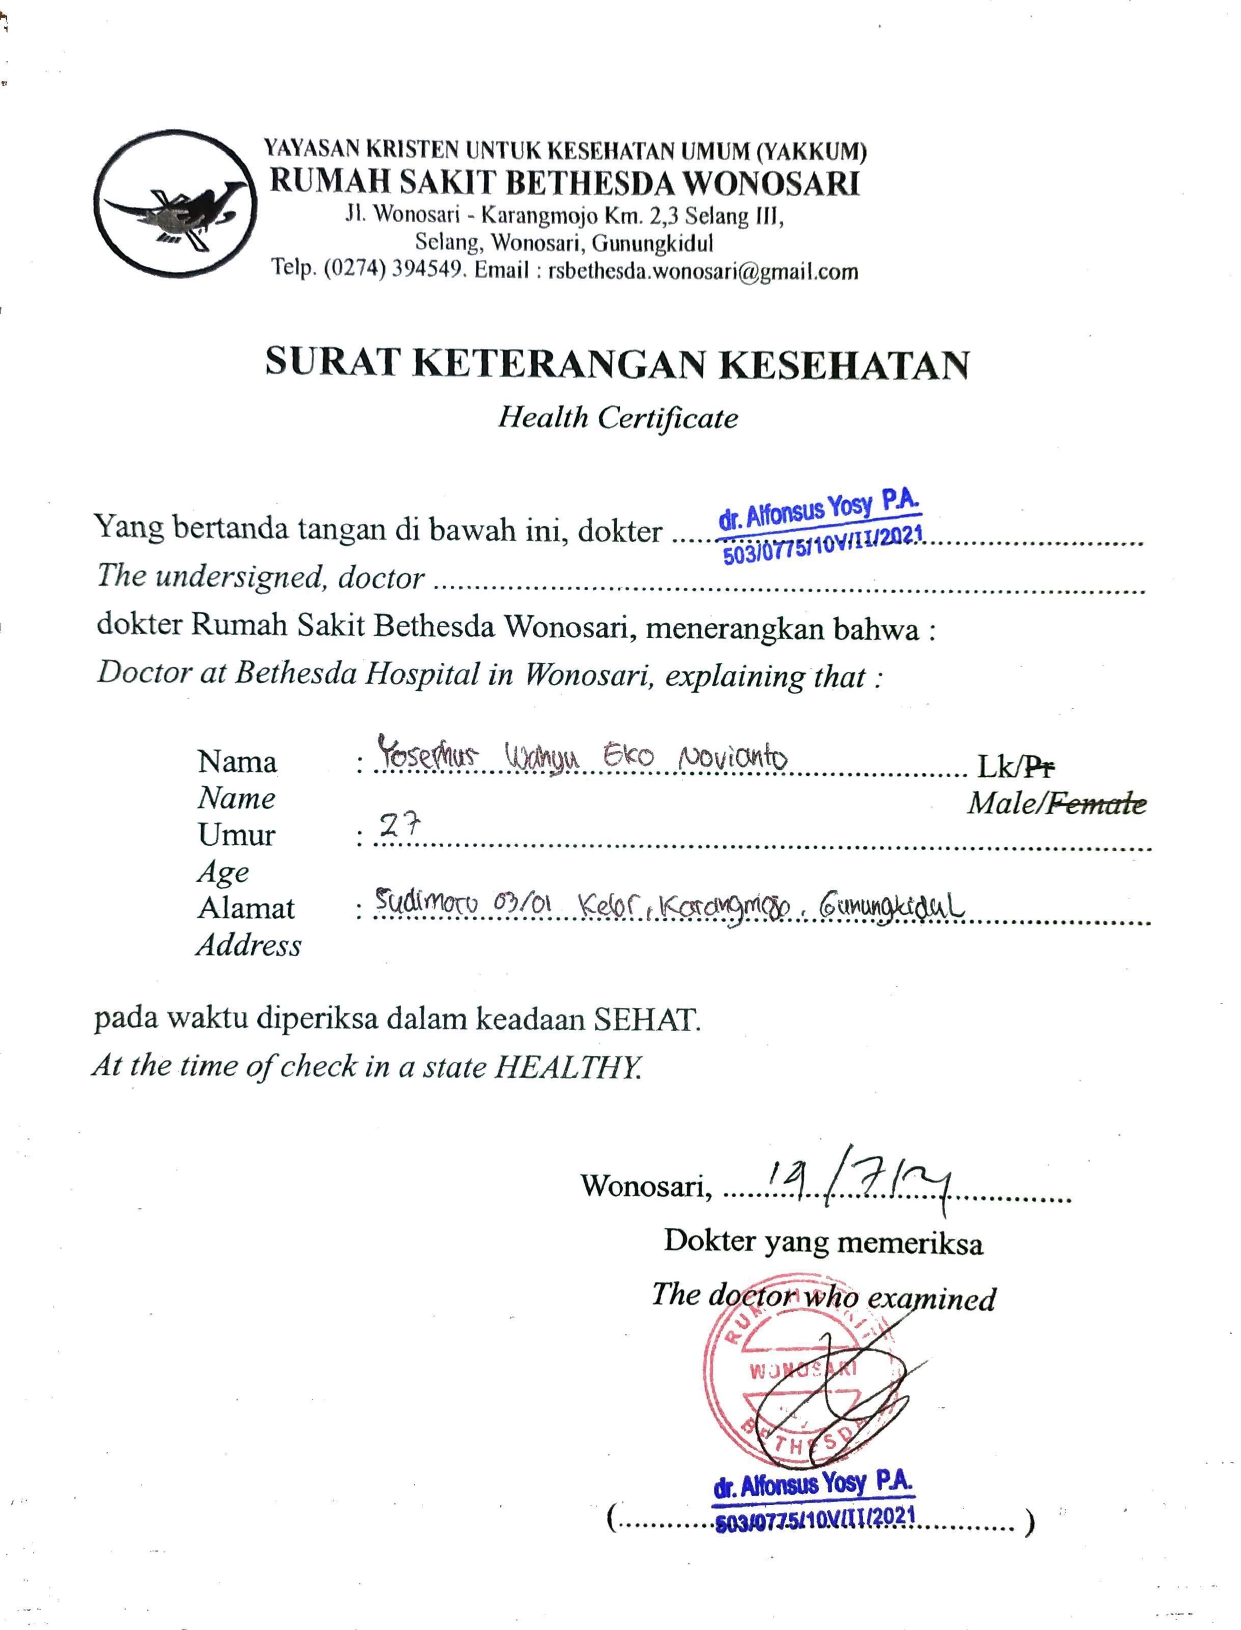 YAYASAN KRISTEN UNTUK KESEHATAN UMUM (YAKKUM)
RUMAH SAKIT BETHESDA WONOSARI
Jl. Wonosari - Karangmojo Km. 2,3 Selang III,
Selang, Wonosari, Gunungkidul
Telp. (0274) 394549. Email : rsbethesda.wonosari@gmail.com
SURAT KETERANGAN KESEHATAN
Health Certificate
Yang bertanda tangan di bawah ini, dokter dr. Alfonsus Yosy P.A.
503/0775/10V/II/2021
The undersigned, doctor
dokter Rumah Sakit Bethesda Wonosari, menerangkan bahwa :
Doctor at Bethesda Hospital in Wonosari, explaining that :
Nama : Yosephus Wahyu Eko Novianto Lk/Pr
Name Male/Female
Umur : 27
Age
Alamat : Sudimoro 03/01 Kelor, Karangmojo, Gunungkidul
Address
pada waktu diperiksa dalam keadaan SEHAT.
At the time of check in a state HEALTHY.
Wonosari, 19/7/
Dokter yang memeriksa
The doctor who examined
RUMAH SAKIT
WONOSARI
BETHESDA
dr. Alfonsus Yosy P.A.
(503/0775/10V/II/2021)